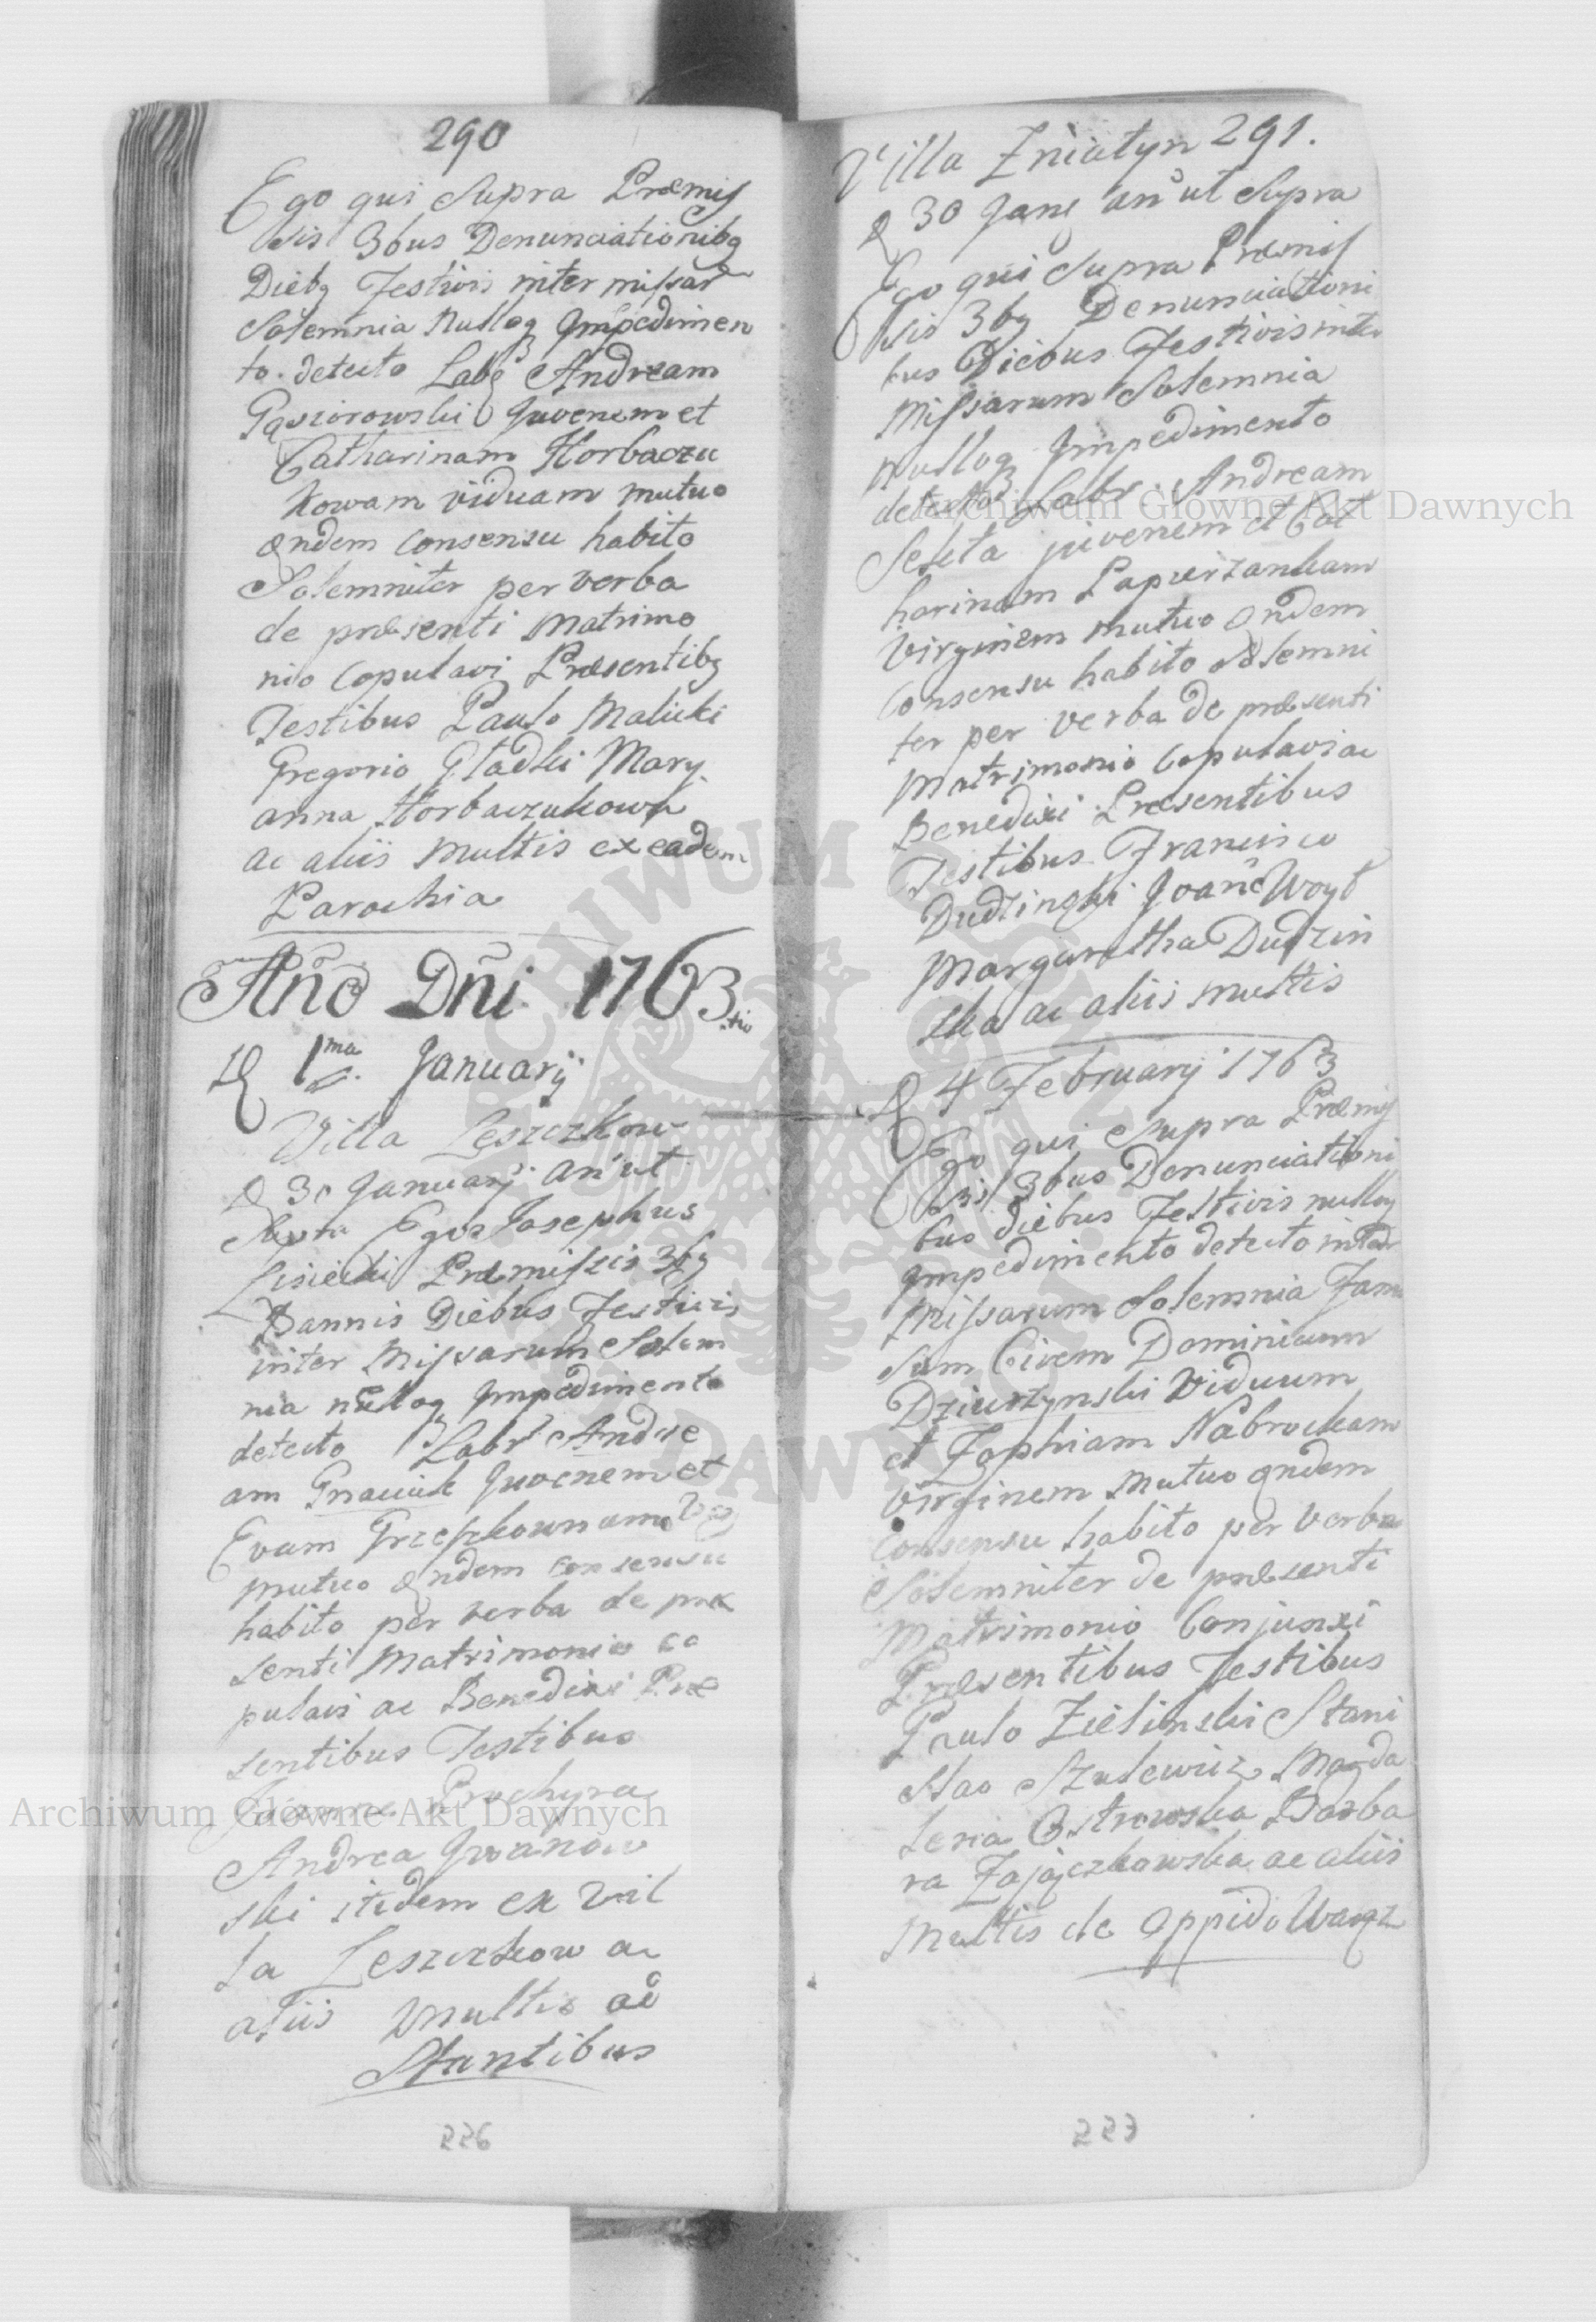 290
Ego qui Supra Præmiſ
sis 3bus Denunciationibq
Diebq Festivis inter miſsar
Solemnia Nulloq Impedimen
to detecto Labs Andream
Gąsiorowski Juvenem et
Catharinam Horbaczu
kowam viduam mutuo
eorndem Consensu habito
Solemniter per verba
de præsenti Matrimo
nio Copulavi Præsentibq
Testibus Paulo Malicki
Gregorio Gładki Mary
anna Horbaczukowa
ac aliis Multis ex eadem
Parochia
Año Dñi 1763.tio
D 1ma Januarij
Villa Leszczkow
D 30 Januarij an ut
Supra Ego Josephus
Lisiecki Præmiſsis 3bq
Bannis Diebus Festivis
inter Miſsarum Solem
nia nulloq Impedimento
detecto Labr Andre
am Juvenem et
Evam
mutuo eorndem consensu
habito per verba de præ
senti Matrimonio co
pulavi ac Benedixi Præ
sentibus Testibus
Joanne Prochyra
Andrea Iwanow
ski itidem ex Vil
la Leszczkow ac
aliis Multis ad
Stantibus
226
Villa Zniatyn 291.
D 30 Jany an ut Supra
Ego qui Supra Præmiſ
sis 3bq Denunciationi
bus Diebus Festivis inter
Miſsarum Solemnia
Nulloq Impedimento
detecto Labr. Andream
juvenem et Cat
harinam
Virginem mutuo eorndem
Consensu habito Solemni
ter per verba de præsenti
Matrimonio Copulavi ac
Benedixi Præsentibus
Testibus Francisco
Dudzinski Joane Woyt
Margaretha Dudzin
ska ac aliis multis
D 4 February 1763
Ego qui Supra Præmiſ
sis 3bus Denunciationi
bus diebus Festivis nulloq
Impedimento detecto inter
Miſsarum Solemnia Fam
sum Civem Dominicum
Dziurzynski Viduum
et Zophiam Nabrockam
Virginem Mutuo eorndem
Consensu habito per verba
Solemniter de præsenti
Matrimonio Conjunxi
Præsentibus Testibus
Paulo Zielinski Stani
slao Szulewicz Magda
lena Ostrowska Barba
ra Zajączkowska ac aliis
Multis de Oppido Waręz
227
Archiwum Główne Akt Dawnych
Archiwum Główne Akt Dawnych